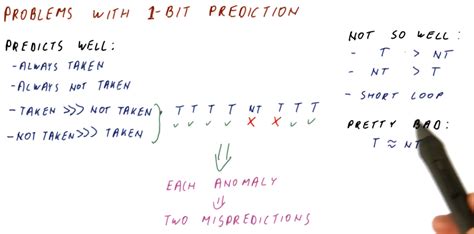 PROBLEMS WITH 1-BIT PREDICTION
PREDICTS WELL:
- ALWAYS TAKEN
- ALWAYS NOT TAKEN
- TAKEN >>> NOT TAKEN
- NOT TAKEN >>> TAKEN
T T T T NT T T T
✓ ✓ ✓ ✓ X X ✓ ✓
EACH ANOMALY
TWO MISPREDICTIONS
NOT SO WELL:
- T > NT
- NT > T
- SHORT LOOP
PRETTY BAD:
T ≈ NT